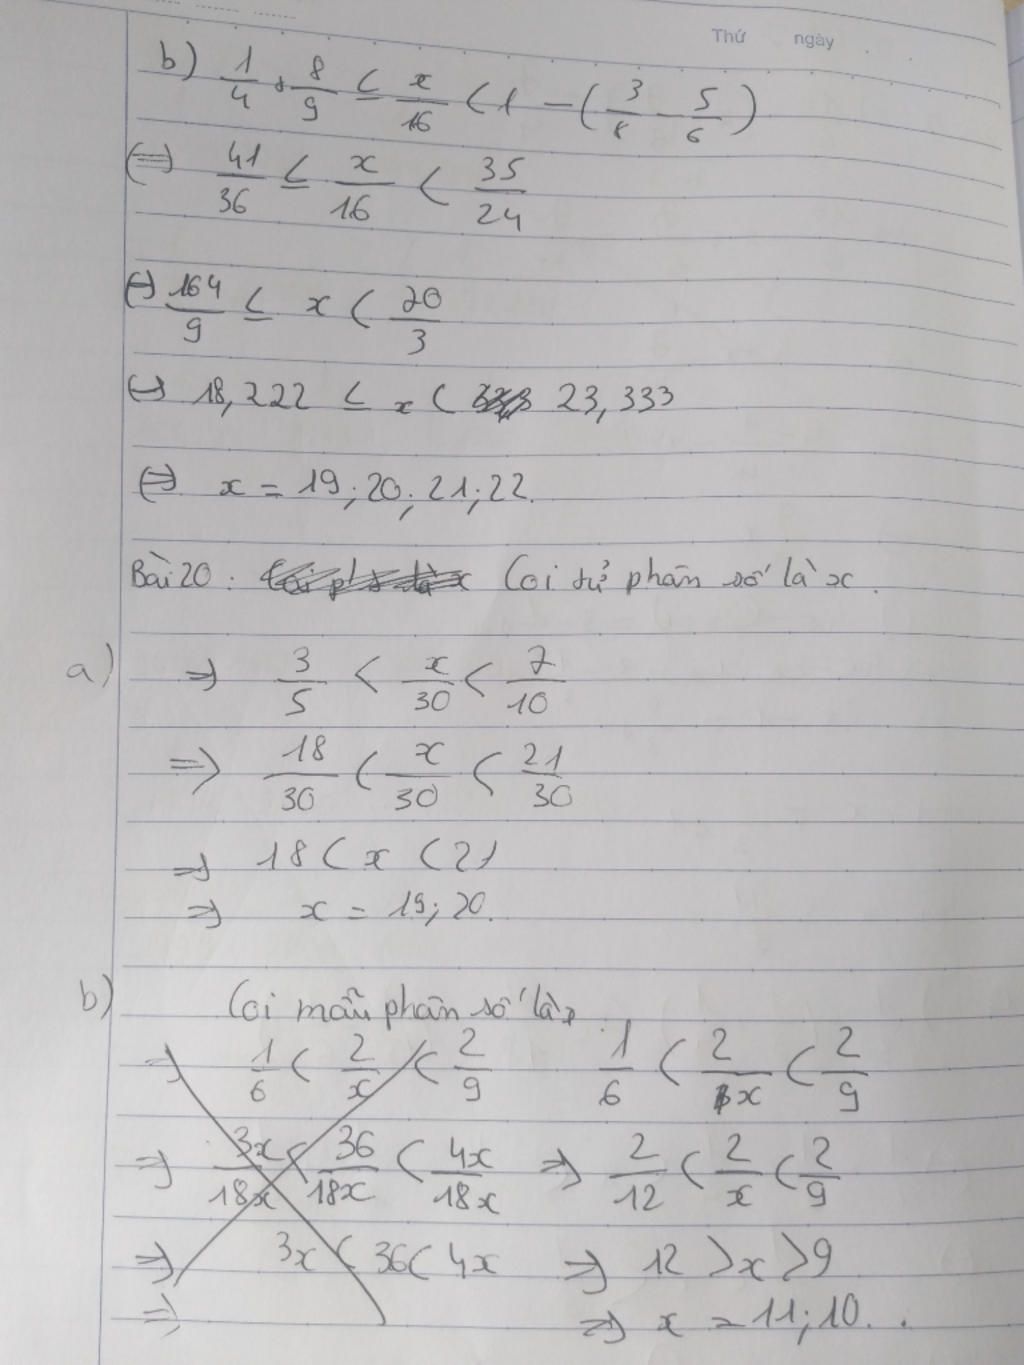 Thứ ngày
b) 1/4 + 8/9 ≤ x/16 < 1 - (3/8 - 5/6)
(=) 41/36 ≤ x/16 < 35/24
(=) 164/9 ≤ x < 70/3
(=) 18,222 ≤ x < 23,333
(=) x = 19; 20; 21; 22.
Bài 20: Coi tử phân số là x.
a) => 3/5 < x/30 < 7/10
=> 18/30 < x/30 < 21/30
=> 18 < x < 21
=> x = 19; 20.
b) Coi mẫu phân số là x
=> 1/6 < 2/x < 2/9 1/6 < 2/x < 2/9
=> 3x/18x < 36/18x < 4x/18x => 2/12 < 2/x < 2/9
=> 3x < 36 < 4x => 12 > x > 9
=> => x = 11; 10.